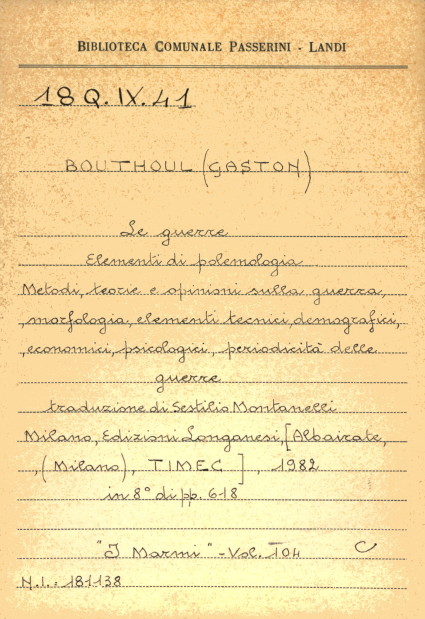 BIBLIOTECA COMUNALE PASSERINI - LANDI
18 Q. IX. 41
BOUTHOUL (GASTON)
Le guerre
Elementi di polemologia
Metodi, teorie e opinioni sulla guerra,
, morfologia, elementi tecnici, demografici,
, economici, psicologici, periodicità delle
guerre
traduzione di Sestilio Montanelli
Milano, Edizioni Longanesi, [Albairate,
, (Milano), TIMEC], 1982
in 8° di pp. 618
"I Marmi" - Vol. 104
C
N.I.: 181138